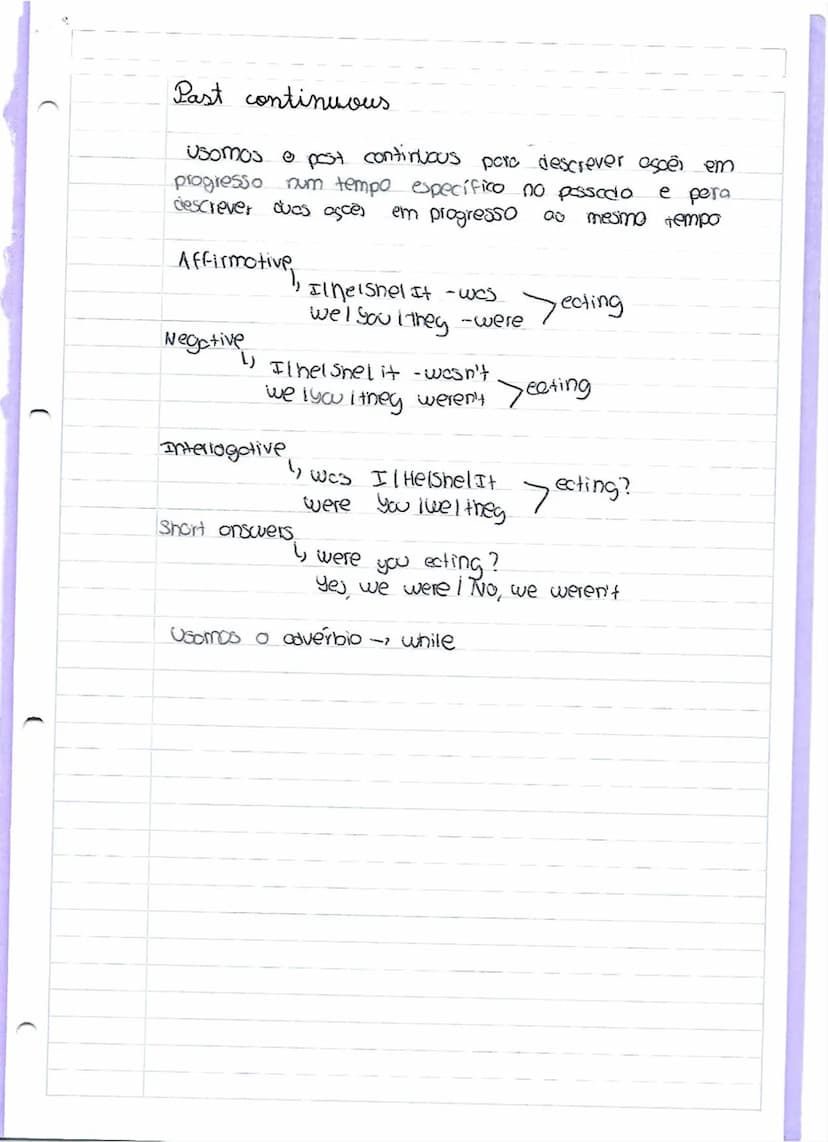 Past continuous
Usamos o past continuous para descrever ações em
progresso num tempo específico no passado e para
descrever duas ações em progresso ao mesmo tempo
Affirmative
↳ I/he/she/It - was
we/you/they - were > eating
Negative
↳ I/he/she/it - wasn't
we/you/they weren't > eating
Interrogative
↳ was I/He/she/It
were you/we/they > eating?
Short answers
↳ were you eating?
Yes, we were / No, we weren't
Usamos o advérbio → while